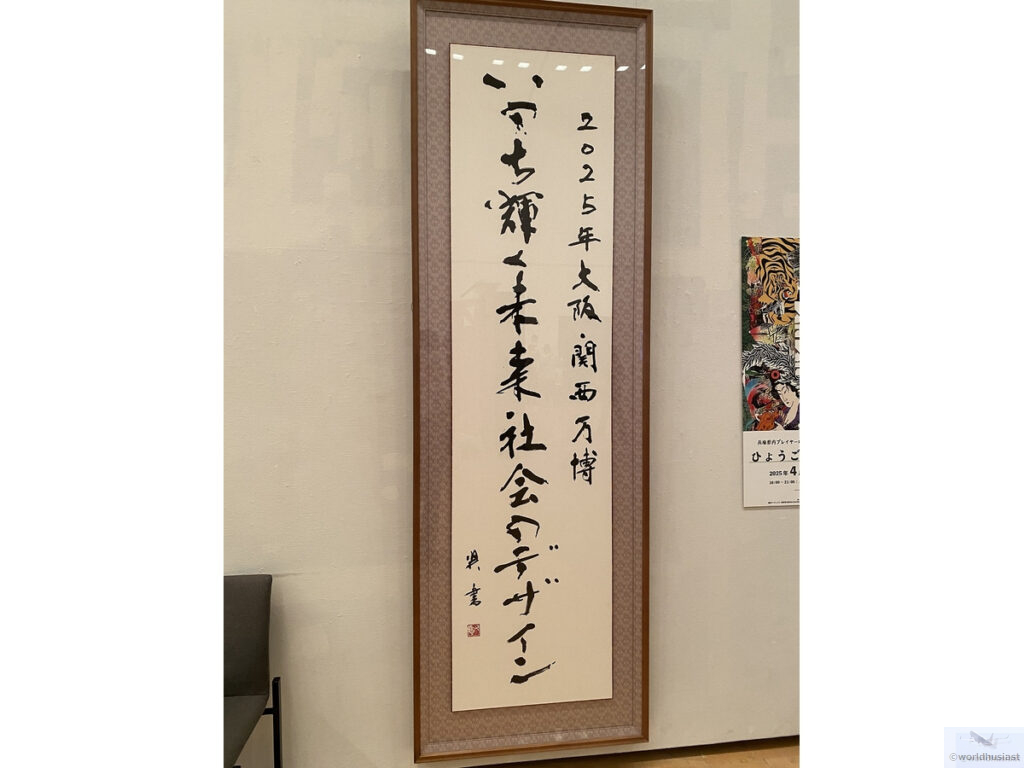 2025年大阪・関西万博
いのち輝く未来社会のデザイン
書
兵庫県内プレイヤー
ひょうご
2025年4
©worldhusiast